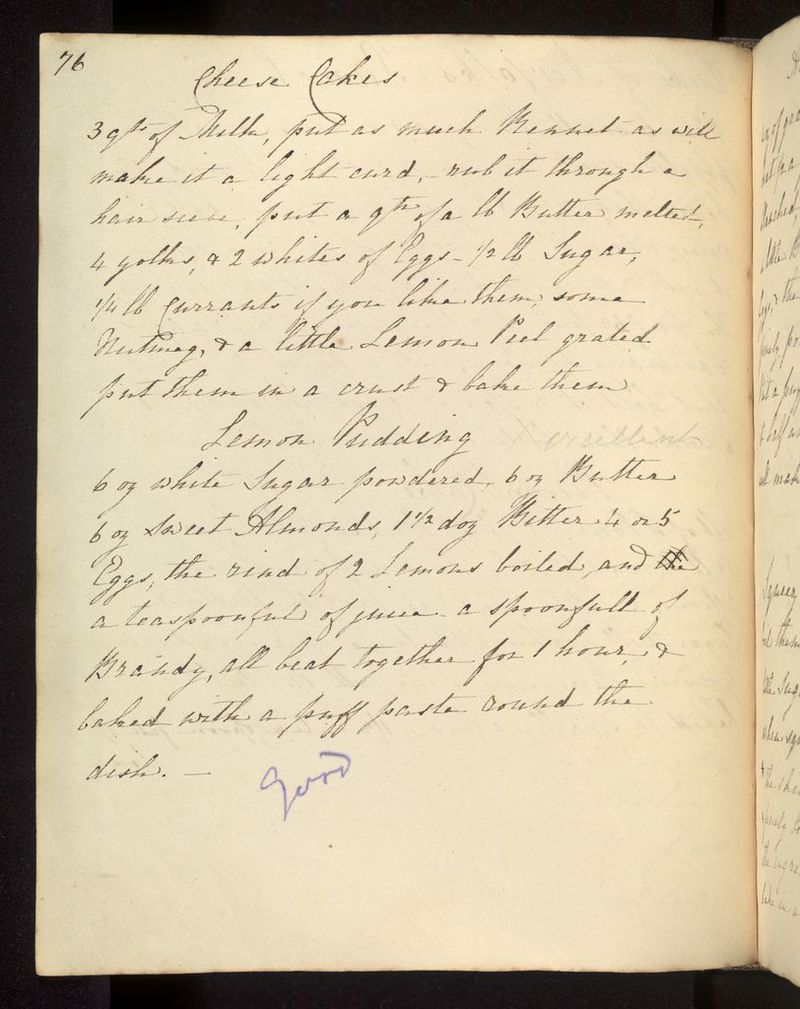 76
Cheese Cakes
3 qts of Milk, put as much Rennet as will
make it a light curd, - rub it through a
hair sieve, put a qtr of a lb Butter melted,
4 yolks, & 2 whites of Eggs - 1/2 lb Sugar,
1/4 lb Currants if you like them, some
Nutmeg, & a little Lemon Peel grated
put them in a crust & bake them
Lemon Pudding excellent
6 oz white Sugar powdered, 6 oz Butter
6 oz Sweet Almonds, 1 1/2 doz Bitter 4 or 5
Eggs, the rind of 2 Lemons boiled, and the
a teaspoonful of juice a spoonfull of
Brandy, all beat together for 1 hour, &
baked with a puff paste round the
dish. —
Good